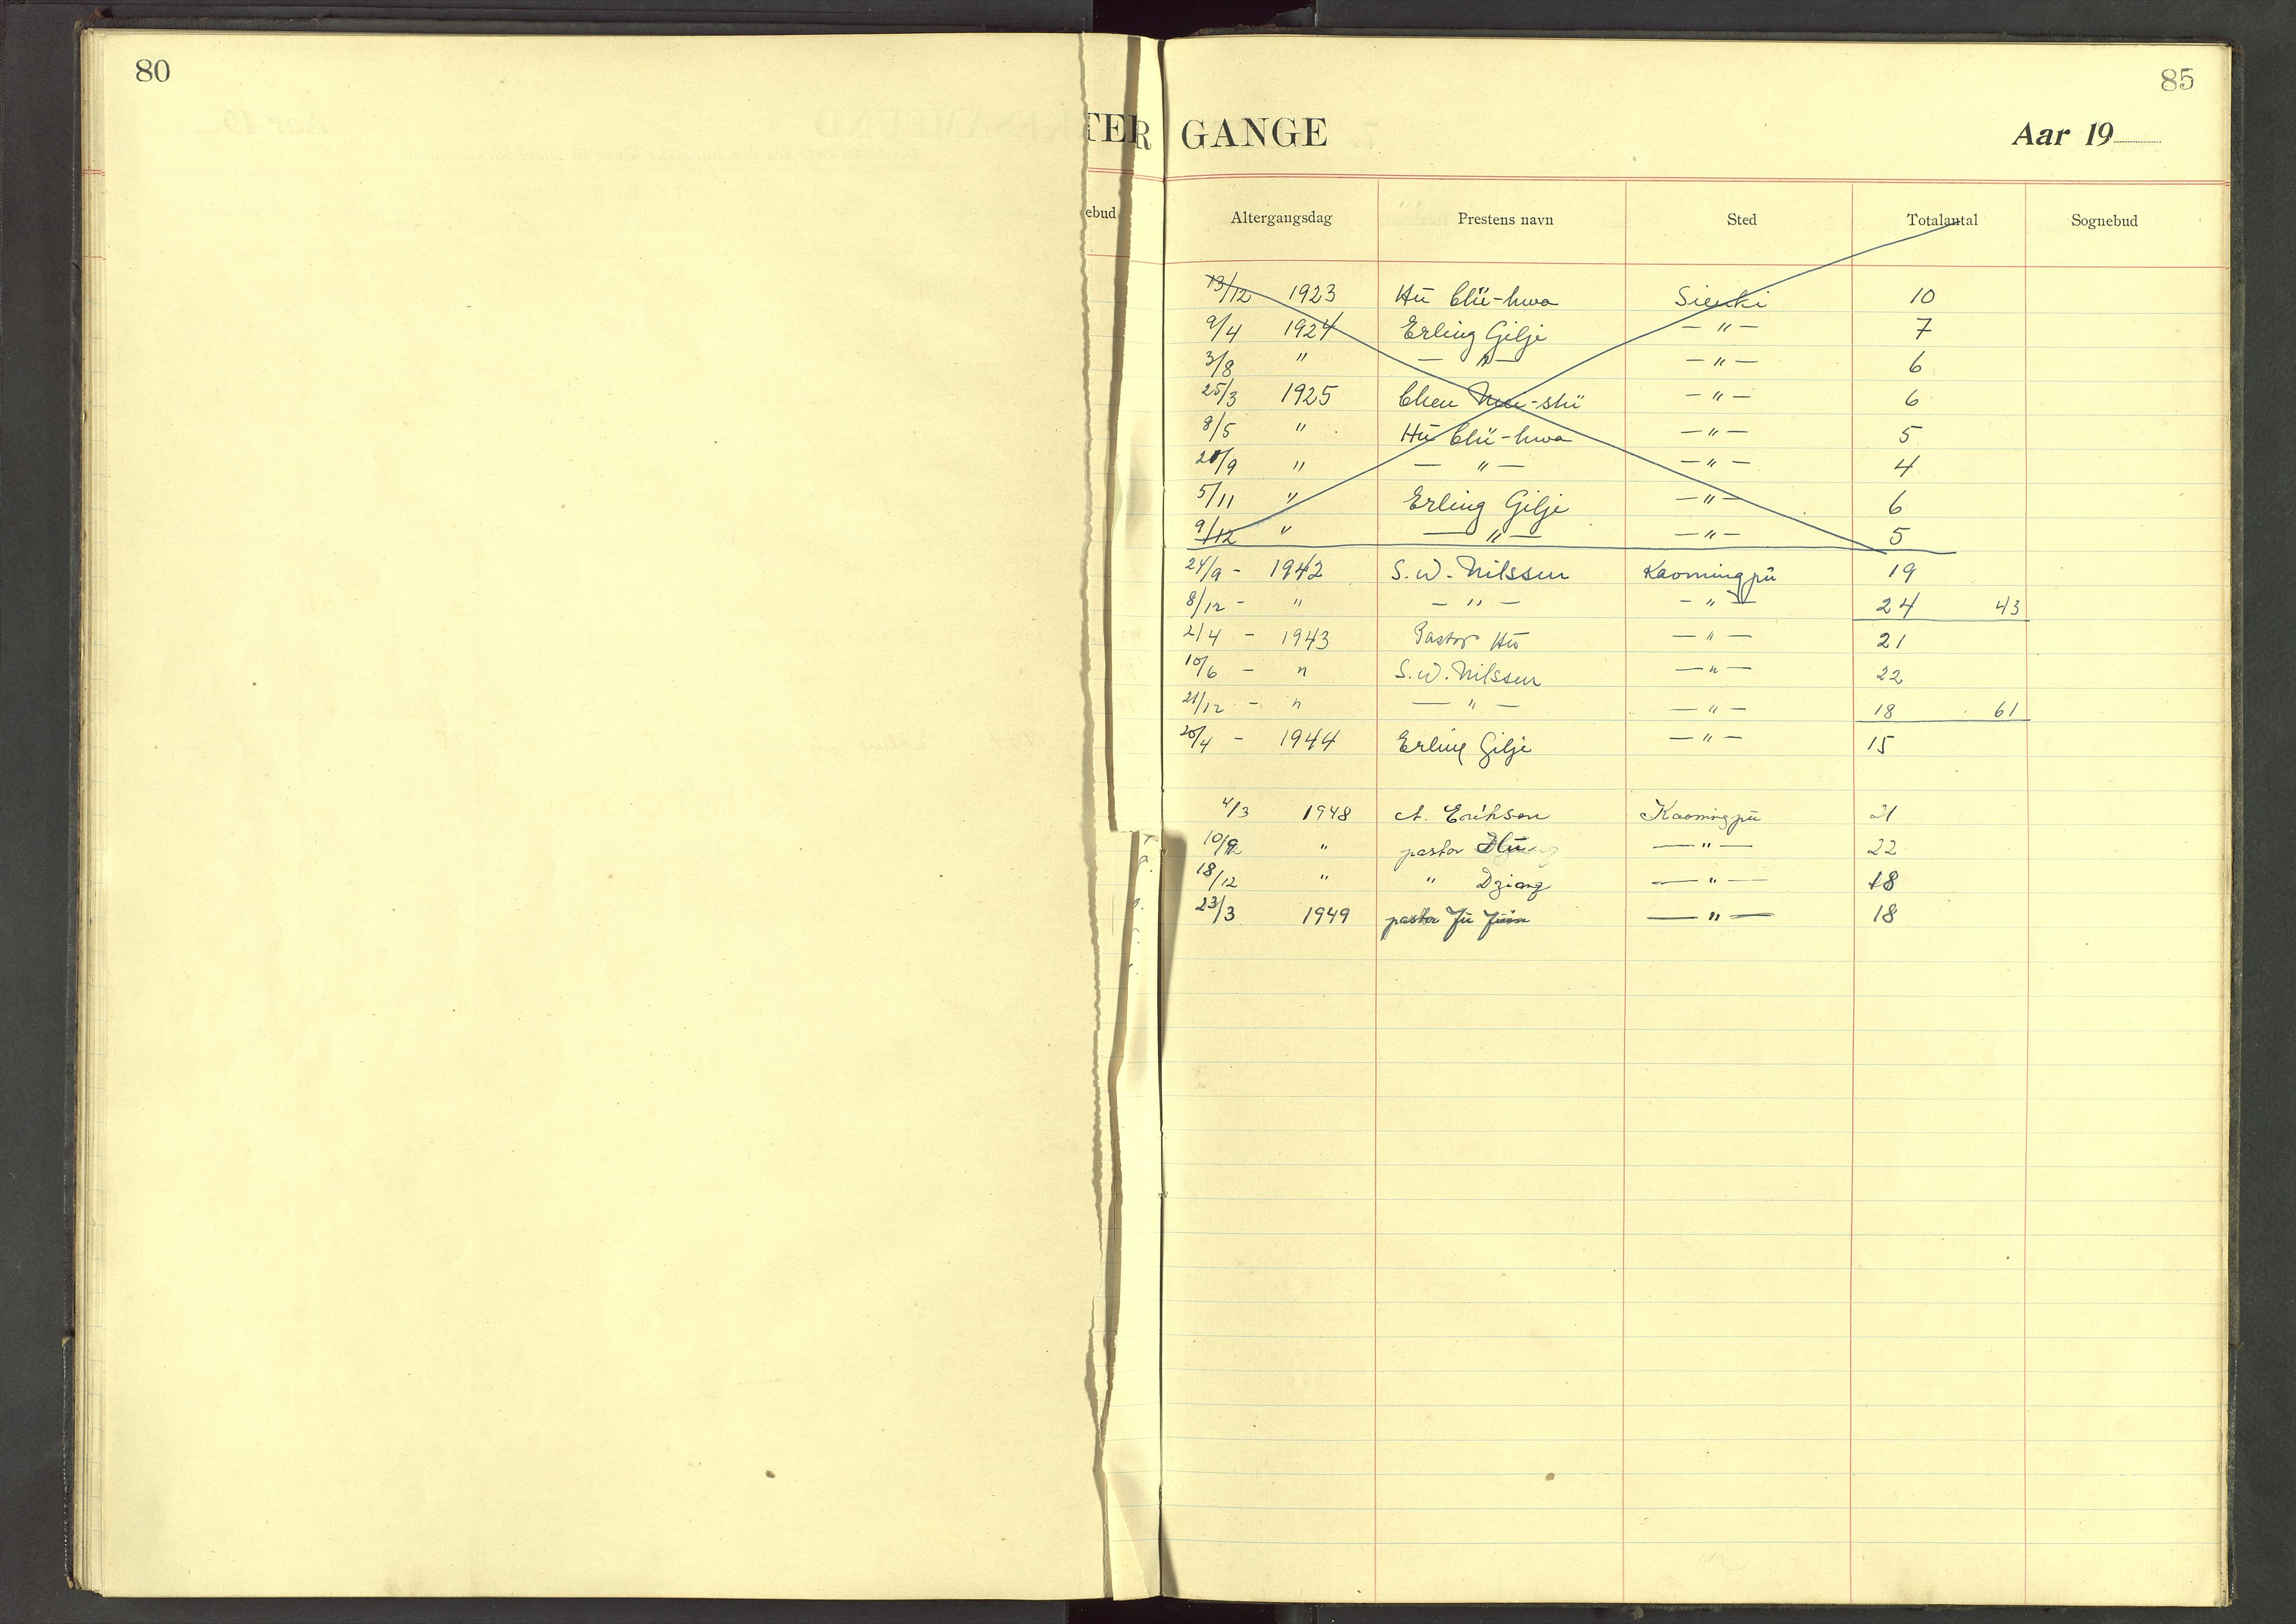 80
85
TER GANGE Aar 19
ebud
Altergangsdag Prestens navn Sted Totalantal Sognebud
13/12 1923 Hü Chï-hwa Sienki 10
9/4 1924 Erling Gilje — " — 7
3/8 " — " — — " — 6
25/3 1925 Chen -shï — " — 6
8/5 " Hü Chï-hwa — " — 5
/9 " — " — — " — 4
5/11 " Erling Gilje — " — 6
9/12 " — " — — " — 5
24/9 - 1942 S. W. Nilssen Kaomingpü 19
8/12 - " — " — — " — 24 43
2/4 - 1943 Pastor Hü — " — 21
10/6 - " S. W. Nilssen — " — 22
21/12 - " — " — — " — 18 61
20/4 - 1944 Erling Gilje — " — 15
4/3 1948 A. Erikson Kaomingpü 21
10/ " pastor Hü — " — 22
18/12 " " Dziang — " — 18
23/3 1949 pastor — " — 18